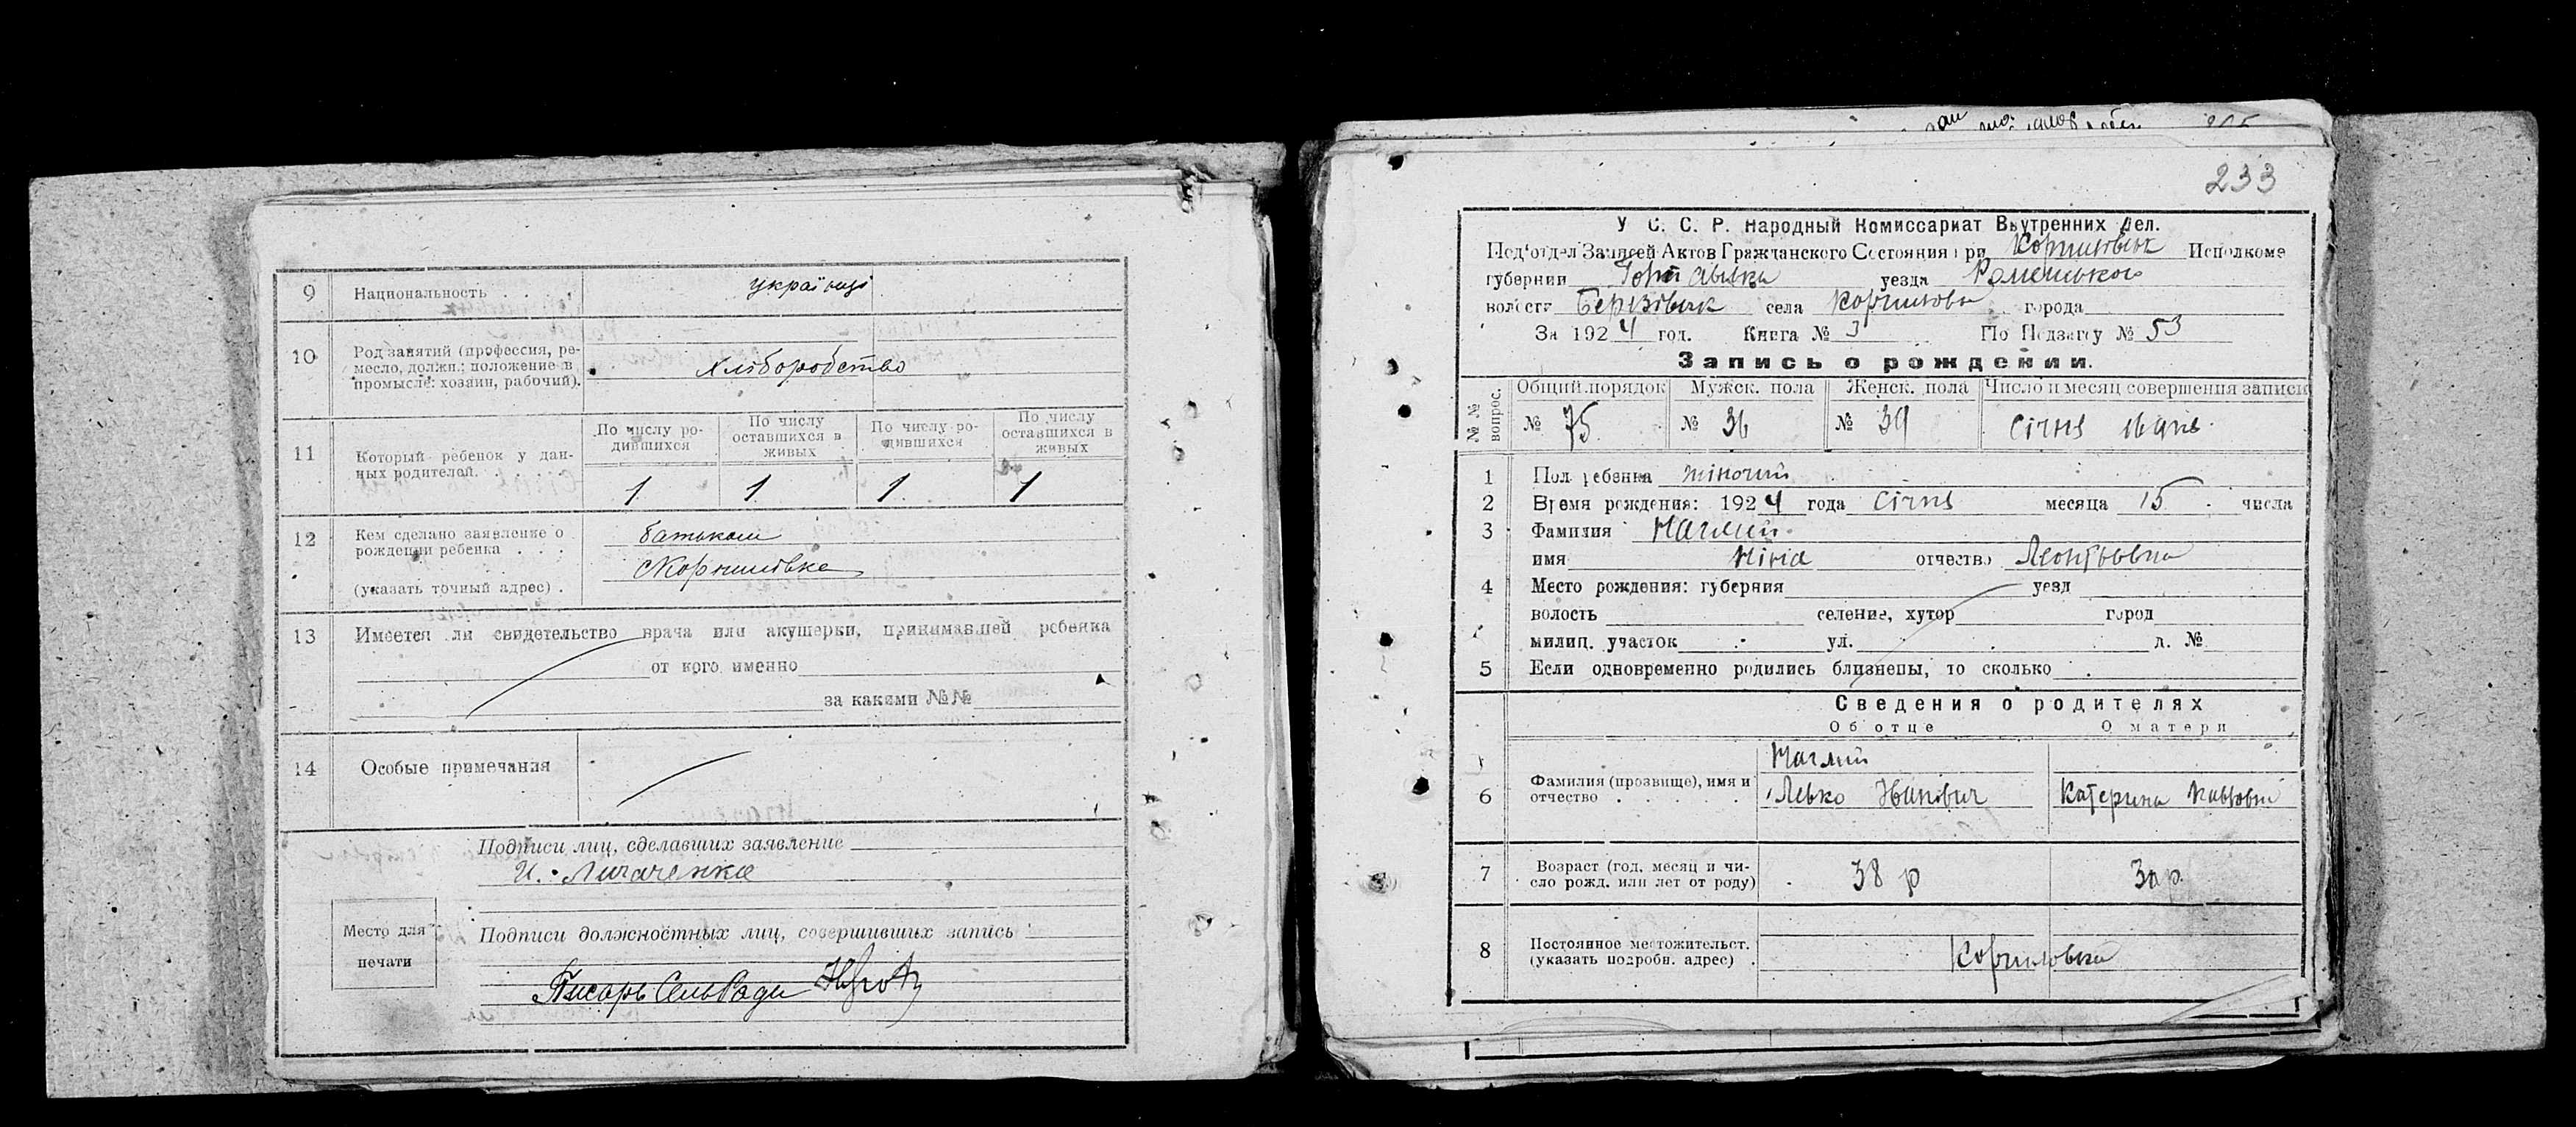 9 Национальность . . . . українці
10 Род занятий (профессия, ре-
месло, должн.; положение в
промысле: хозяин, рабочий). хліборобство
11 Который ребенок у дан-
ных родителей. . . . .
По числу ро-
дившихся
По числу
оставшихся в
живых
По числу ро-
дившихся
По числу
оставшихся в
живых
1 1 1 1
12 Кем сделано заявление о
рождении ребенка . . . батьком
(указать точный адрес) .
13 Имеется ли свидетельство врача или акушерки, принимавшей ребенка
от кого именно
за какими №№
14 Особые примечания
Подписи лиц, сделавших заявление
Место для
печати
Подписи должностных лиц, совершивших запись
Писарь СельРади
233
У С. С. Р. Народный Комиссариат Внутренних Дел.
Под'отдел Записей Актов Гражданского Состояния при Исполкоме
губернии уезда Роменського
волости села города
За 1924 год. Книга № 3 По Подзагсу № 53
Запись о рождении.
№№ вопрос.
Общий порядок Мужск. пола Женск. пола Число и месяц совершения записи
№ 75 № 36 № 39 Січня 16 дня
1 Пол ребенка жіночий
2 Время рождения: 1924 года Січня месяца 15 числа
3 Фамилия
имя Ніна отчество
4 Место рождения: губерния уезд
волость селение, хутор город
милиц. участок ул. д. №
5 Если одновременно родились близнецы, то сколько
Сведения о родителях
Об отце О матери
6 Фамилия (прозвище), имя и
отчество . . . . Левко Іванович Катерина
7 Возраст (год, месяц и чи-
сло рожд. или лет от роду) 38 р 30 р.
8 Постоянное местожительст.
(указать подробн. адрес) .